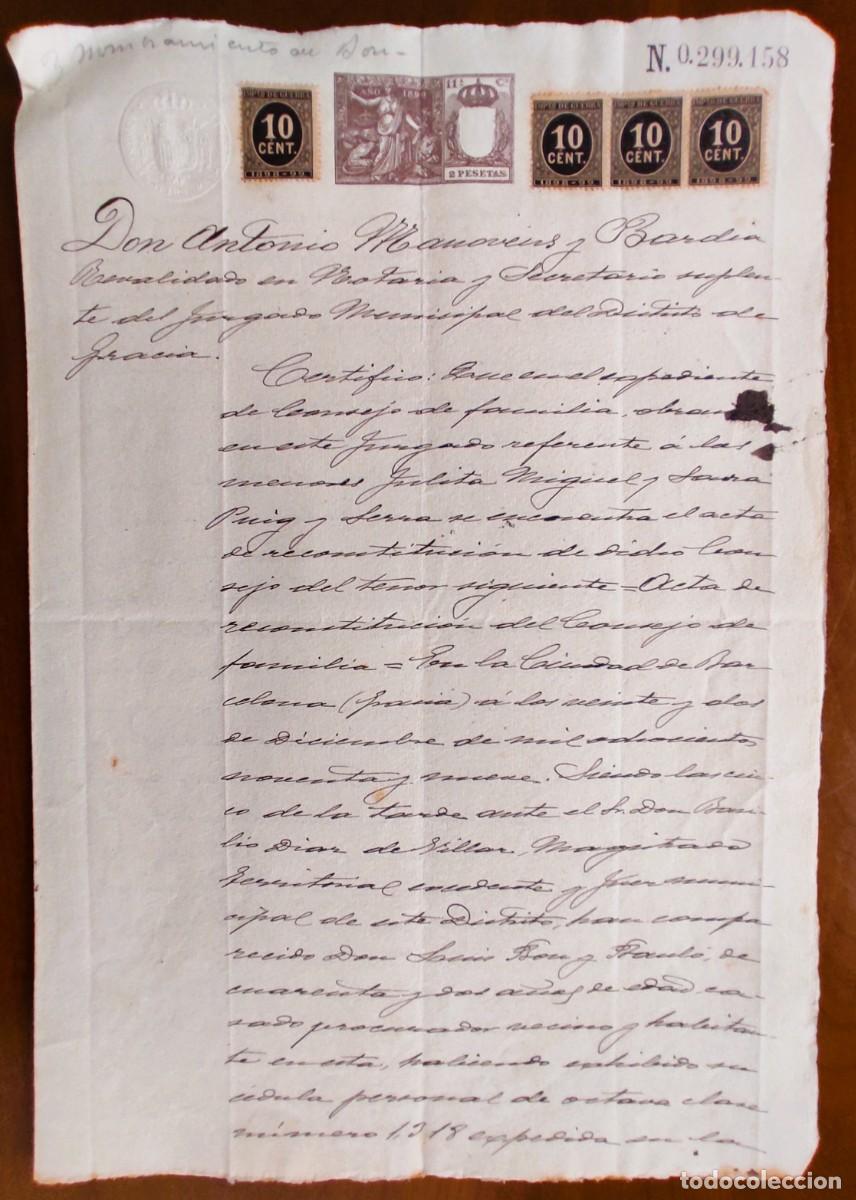 N. 0.299.158
AÑO 1899
11ª Cª
2 PESETAS
IMPTO DE GUERRA
10
CENT.
1898-99
IMPTO DE GUERRA
10
CENT.
1898-99
IMPTO DE GUERRA
10
CENT.
1898-99
IMPTO DE GUERRA
10
CENT.
1898-99
Don Antonio Manovens y Bardia
Revalidado en Notaria y Secretario suplen-
te del Juzgado Municipal del Distrito de
Gracia.
Certifico: Que en el expediente
de Consejo de familia, obran
en este Juzgado referente á los
menores Julita Miguel y Sara
Puig y Serra se encuentra el acta
de reconstitución de dicho Con
sejo del tenor siguiente = Acta de
reconstitución del Consejo de
familia = En la Ciudad de Bar
celona (Gracia) á los veinte y dos
de Diciembre de mil ochocientos
noventa y nueve. Siendo las cin-
co de la tarde ante el Sr. Don Basi-
lio Diaz de Villar, Magistrado
Territorial excedente y Juez muni-
cipal de este Distrito, han compa
recido Don Luis Fon y de
cuarenta y dos años de edad ca-
sado procurador vecino y habitan-
te en esta, habiendo exhibido su
cédula personal de octava clase
número 1318 expedida en la
todocoleccion